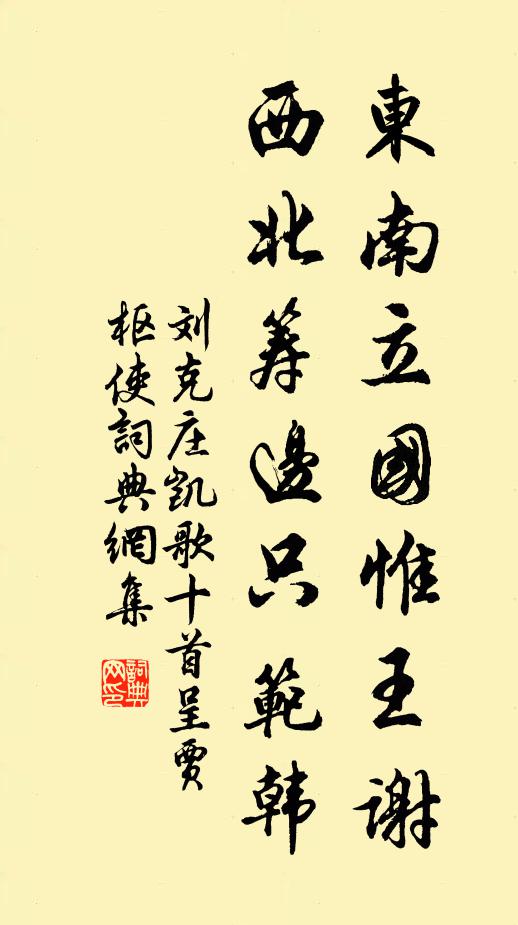 東南立國惟王謝
西北筹邊只範韩
刘克庄凯歌十首呈贾
枢使詞典網集
詞典
网印